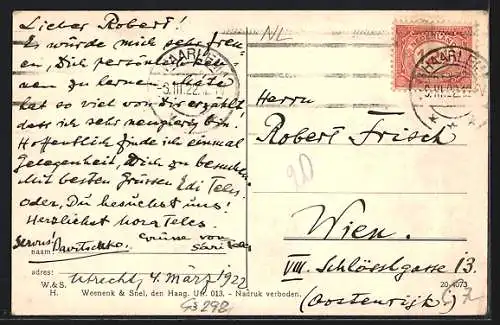 Lieber Robert!
Es würde mich sehr freu-
en, Dich persönlich ken-
nen zu lernen.
hat so viel von Dir erzählt,
dass ich sehr neugierig bin.
Hoffentlich finde ich einmal
Gelegenheit, Dich zu besuchen.
Mit besten Grüssen Edi Teles
oder, Du besuchst uns!
Herzlichst Nora Teles.
Servus!
Grüsse von
naam:
adres: Utrecht, 4. März 1922
W. & S.
H. Weenenk & Snel, den Haag. Uft. 013. - Nadruk verboden. 20 4073
G5 298
NL
HAARLEM
5.III.22.12
HAARLEM
5.III.22.12
Herrn
Robert Frisch
Wien.
VIII. Schlösslgasse 13.
(Oostenrijk)